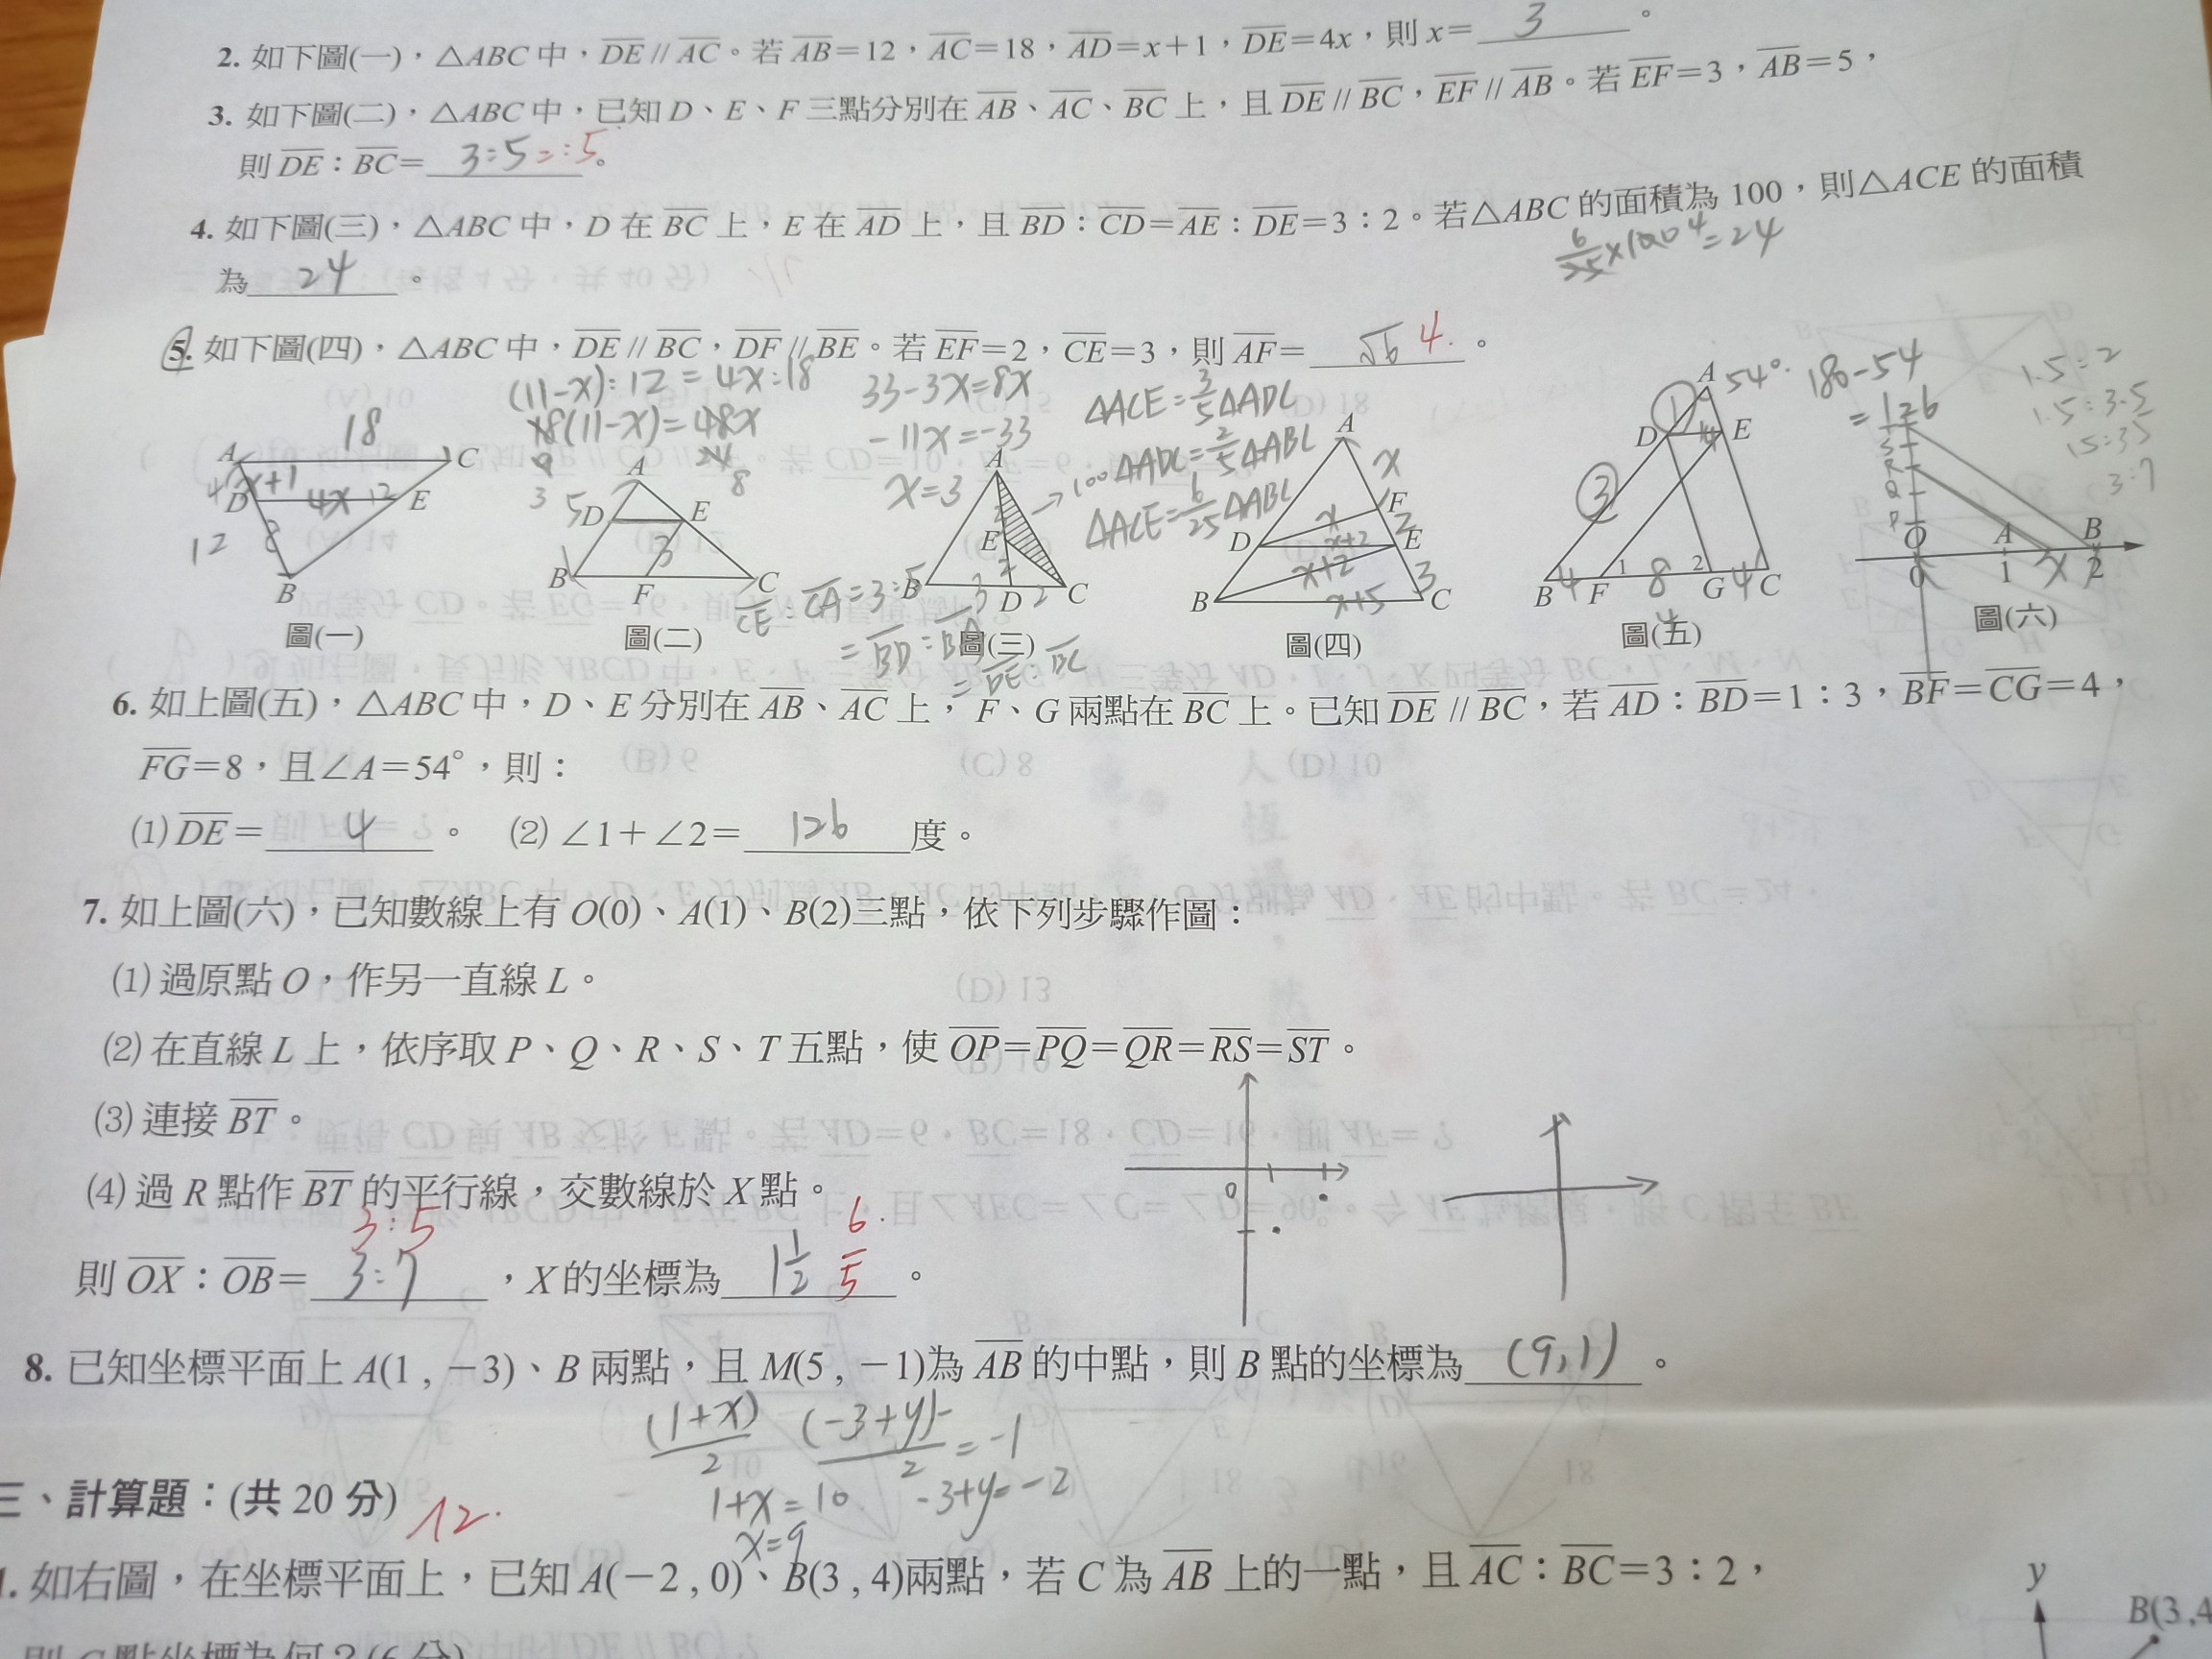 2. 如下圖(一)，△ABC 中，DE // AC。若 AB=12，AC=18，AD=x+1，DE=4x，則 x= 3 。
3. 如下圖(二)，△ABC 中，已知 D、E、F 三點分別在 AB、AC、BC 上，且 DE // BC，EF // AB。若 EF=3，AB=5，
則 DE：BC= 3:5 =:5。
4. 如下圖(三)，△ABC 中，D 在 BC 上，E 在 AD 上，且 BD：CD=AE：DE=3：2。若△ABC 的面積為 100，則△ACE 的面積
為 24 。
6/25×100 4=24
5. 如下圖(四)，△ABC 中，DE // BC，DF // BE。若 EF=2，CE=3，則 AF= √6 4. 。
(11-x):12=4x:18
18(11-x)=48x
33-3x=8x
-11x=-33
x=3
△ACE=3/5△ADC
△ADC=2/5△ABC
△ACE=6/25△ABC
54°. 180-54
=126
1.5:2
1.5:3.5
15:35
3:7
18
A C
x+1
D 4x 12 E
12 8
B
圖(一)
A
5 D E
3
B F C
圖(二)
CE:CA=3:5
=BD:BA
=DE:BC
A
E
2
B 3 D 2 C
圖(三)
A
x
F
x 2
D x+2 E
x+2 3
B x+5 C
圖(四)
A
1
D 4 E
3
1 2
B 4 F 8 G 4 C
圖(五)
S
R
Q
P
O A B
0 1 X 2
圖(六)
6. 如上圖(五)，△ABC 中，D、E 分別在 AB、AC 上，F、G 兩點在 BC 上。已知 DE // BC，若 AD：BD=1：3，BF=CG=4，
FG=8，且∠A=54°，則：
(1) DE= 4 。 (2) ∠1+∠2= 126 度。
7. 如上圖(六)，已知數線上有 O(0)、A(1)、B(2)三點，依下列步驟作圖：
(1) 過原點 O，作另一直線 L。
(2) 在直線 L 上，依序取 P、Q、R、S、T 五點，使 OP=PQ=QR=RS=ST。
(3) 連接 BT。
(4) 過 R 點作 BT 的平行線，交數線於 X 點。
0
3:5
則 OX：OB= 3:7 ，X 的坐標為 1 1/2 6/5 。
8. 已知坐標平面上 A(1 , −3)、B 兩點，且 M(5 , −1)為 AB 的中點，則 B 點的坐標為 (9,1) 。
(1+x)/2 (-3+y)/2=-1
1+x=10 -3+y=-2
x=9
三、計算題：(共 20 分) 12.
1. 如右圖，在坐標平面上，已知 A(−2 , 0)、B(3 , 4)兩點，若 C 為 AB 上的一點，且 AC：BC=3：2，
y
B(3,4
則 C 點坐標為何？(6 分)